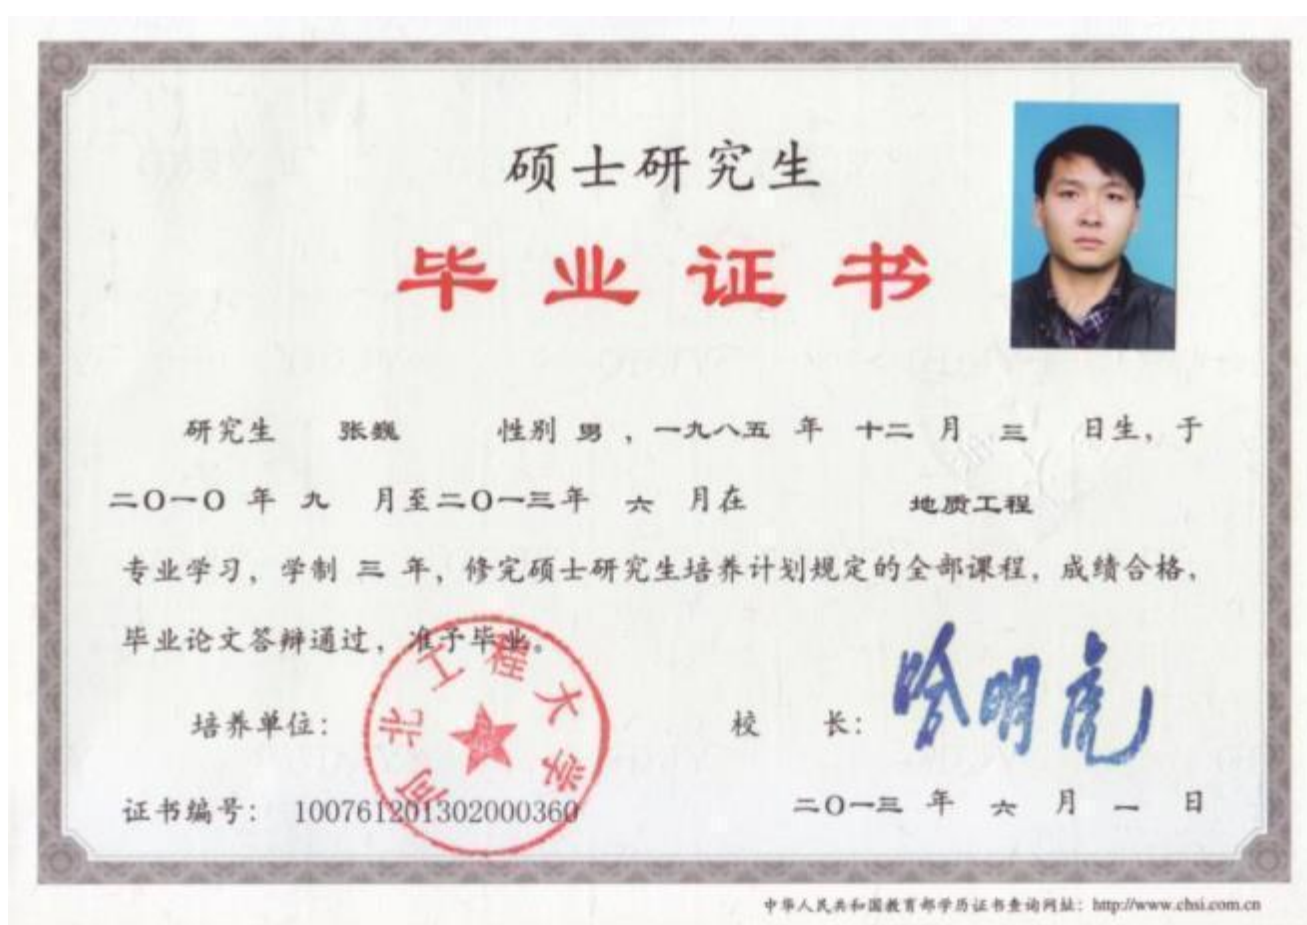 硕士研究生
毕业证书
研究生 张巍 性别 男 , 一九八五 年 十二 月 三 日生, 于
二〇一〇 年 九 月至二〇一三年 六 月在 地质工程
专业学习, 学制 三 年, 修完硕士研究生培养计划规定的全部课程, 成绩合格,
毕业论文答辩通过, 准予毕业。
培养单位:
河北工程大学
校 长: 哈明虎
证书编号: 100761201302000360
二〇一三 年 六 月 一 日
中华人民共和国教育部学历证书查询网址: http://www.chsi.com.cn